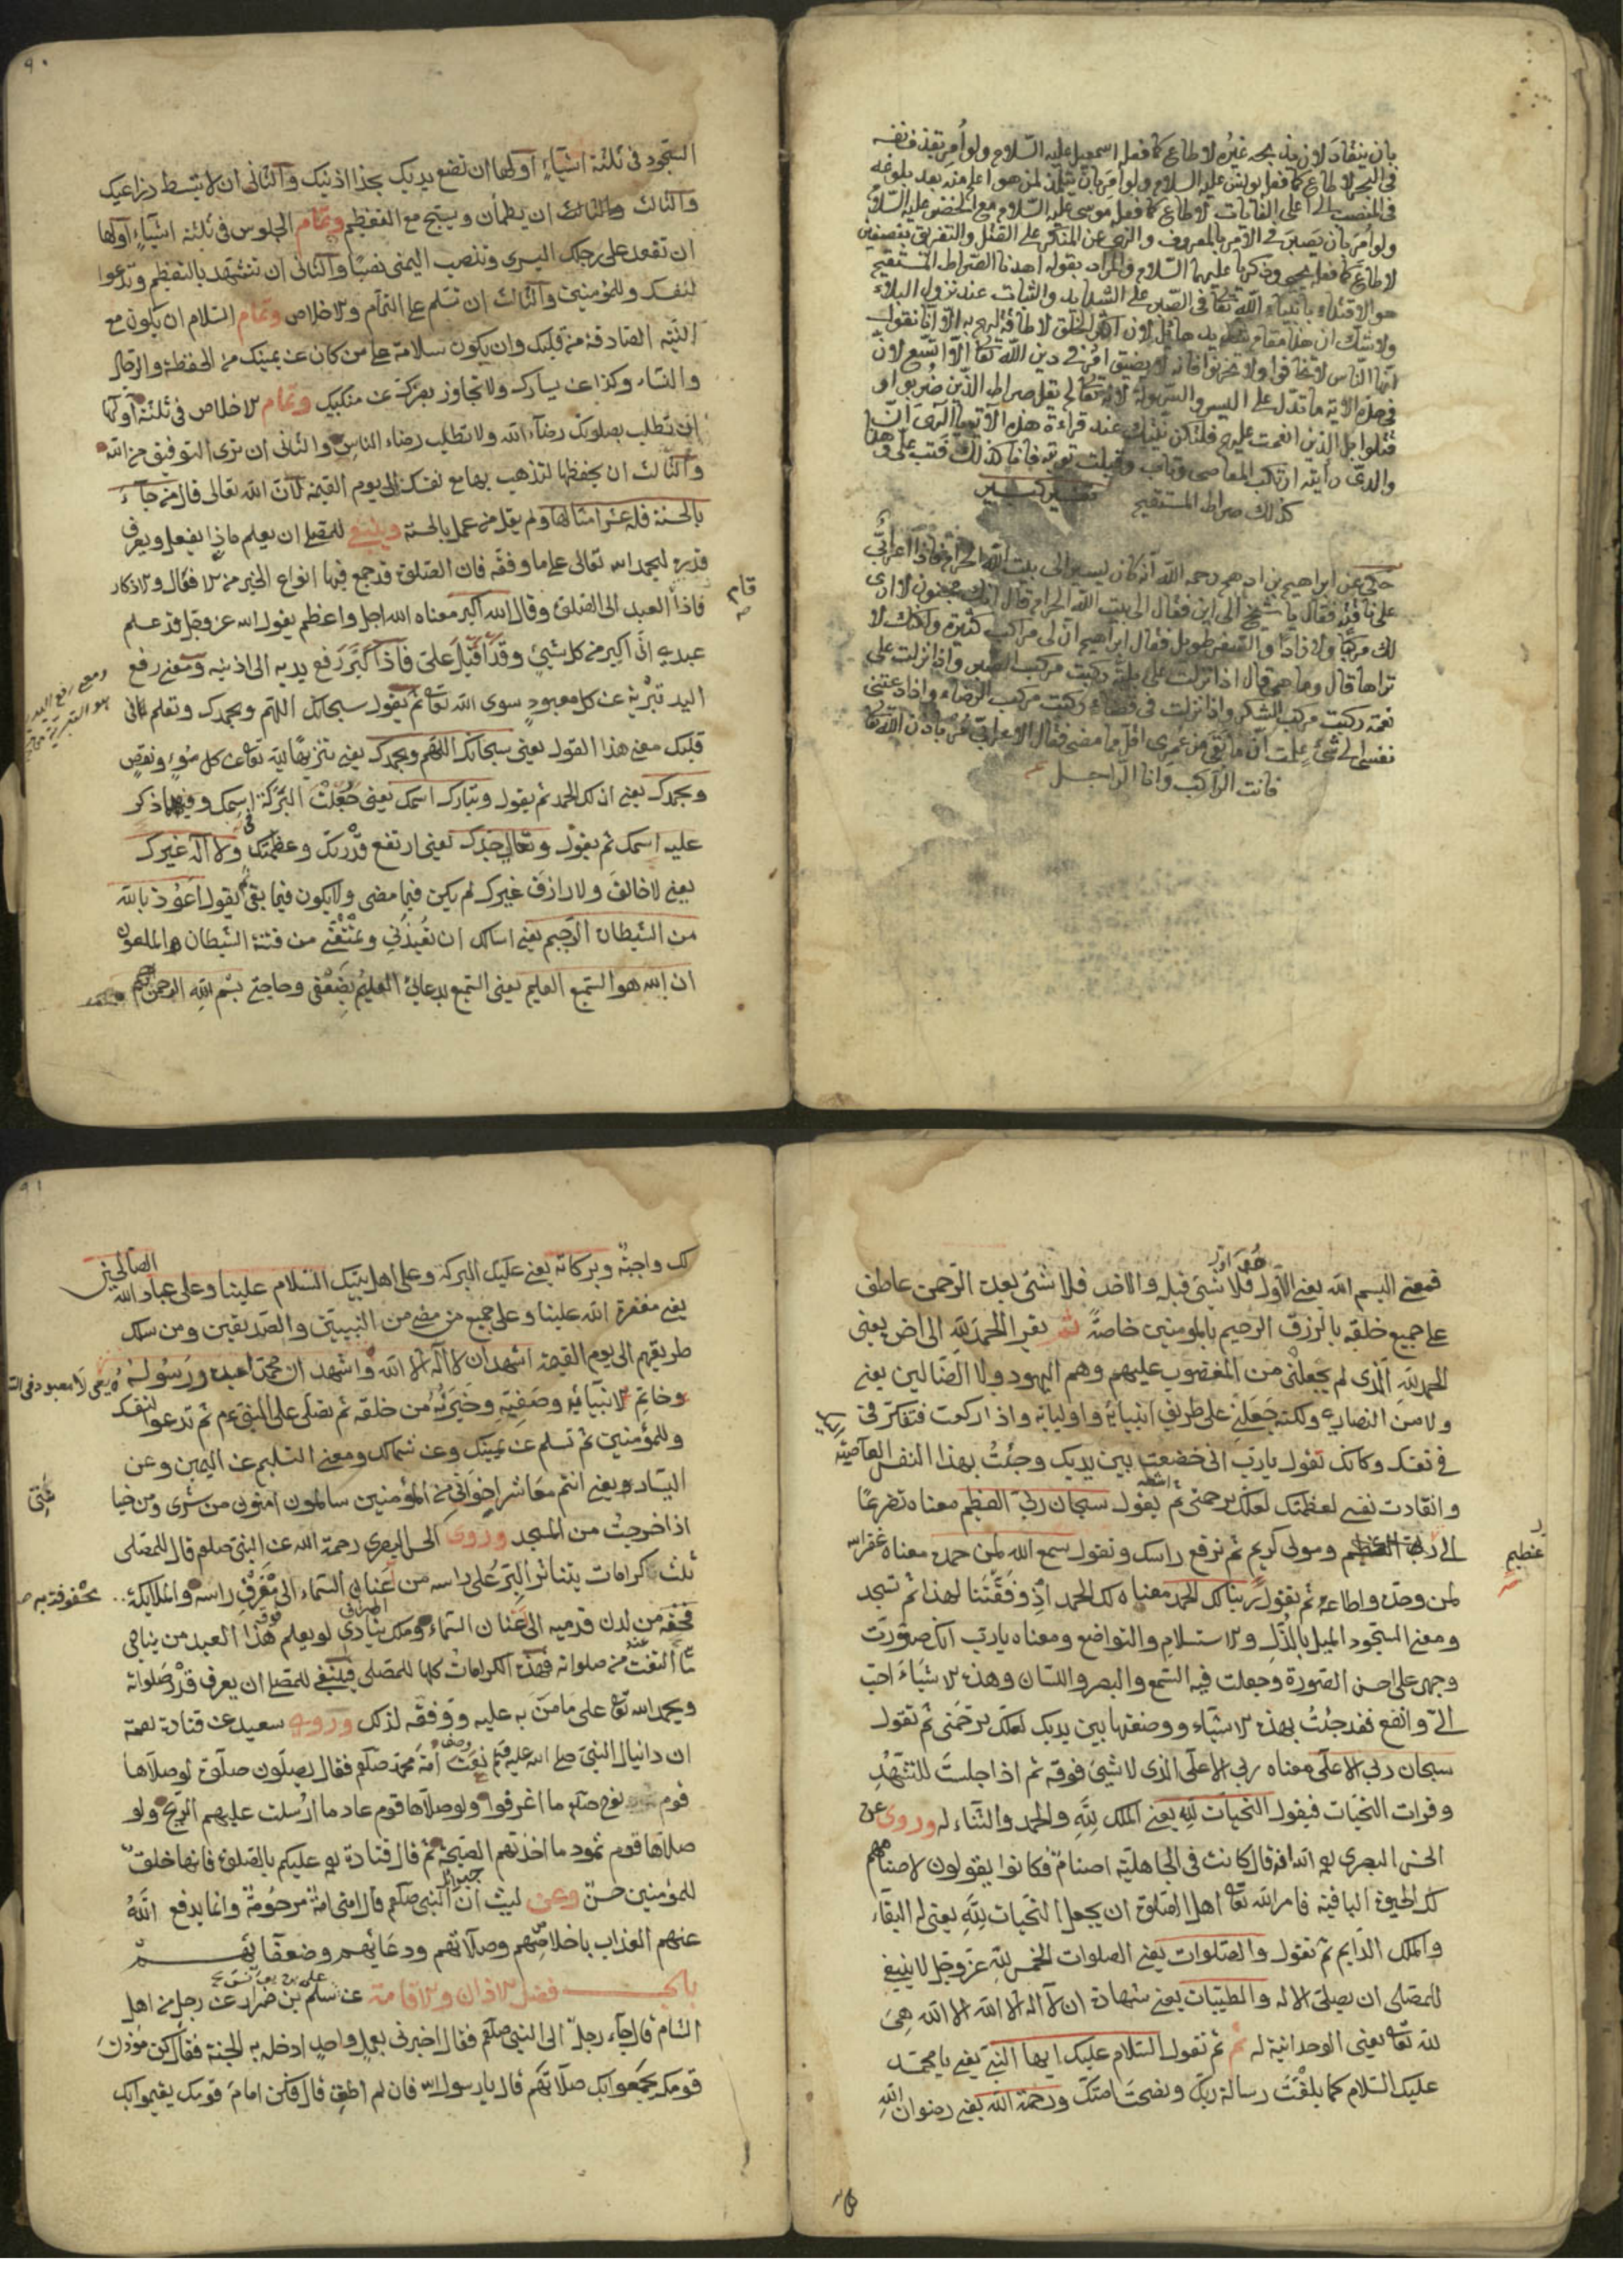 بان ينقاد لان يذبحه غيره لاطاع كما فعل اسمعيل عليه السلام ولو أمر بقذف نفسه
في البحر لاطاع كما فعل يونس عليه السلام ولو أمر بان يتلمذ لمن هو اعلم منه بعد بلوغه
في المنصب الى اعلى الغايات لاطاع كما فعل موسى عليه السلام مع الخضر عليه السلام
ولو أمر بان يصبر في الامر بالمعروف والنهي عن المنكر على القتل والتفريق نصفين
لاطاع كما فعل يحيى وزكريا عليهما السلام والمراد بقوله اهدنا الصراط المستقيم
هو الاقتداء بانبياء الله تعالى في الصبر على الشدايد والثبات عند نزول البلاء
ولا شك ان هذا مقام شديد هائل لان اكثر الخلق لا طاقة لهم به الا انا نقول
ايها الناس لا تخافوا ولا تحزنوا فانه لا يضيق امر في دين الله تعالى الا اتسع لان
في هذه الآية ما تدل على اليسر والسهولة لانه تعالى لم يقل صراط الذين ضربوا و
قتلوا بل الذين انعمت عليهم فلتكن نيتك عند قراءة هذه الآية
والدي رأيته ارتكب المعاصي وتاب وقبلت توبته فانا كذلك فتب علي وهذا
كذلك صراط المستقيم تفسير كبير
حكى عن ابراهيم بن ادهم رحمه الله انه كان يسير الى بيت الله الحرام فاذا اعرابي
على ناقة فقال يا شيخ الى اين فقال الى بيت الله الحرام قال انك مجنون لا ارى
لك مركبا ولا زادا والسفر طويل فقال ابراهيم ان لي مراكب كثيرة ولكنك لا
تراها قال وما هي قال اذا نزلت على بلية ركبت مركب الصبر واذا نزلت على
نعمة ركبت مركب الشكر واذا نزلت في قضاء ركبت مركب الرضاء واذا دعتني
نفسي الى شئ علمت ان ما بقي من عمري اقل مما مضى فقال الاعرابي سر باذن الله تعالى
فانت الراكب وانا الراجل
٩٠
السجود في ثلثة اشياء اولها ان تضع يديك بحذا اذنيك والثاني ان لا تبسط ذراعيك
والثالث ان يطمأن ويسبح مع التعظيم وتمام الجلوس في ثلثة اشياء اولها
ان تقعد على رجلك اليسرى وتنصب اليمنى نصبا والثاني ان تتشهد بالتعظيم وتدعوا
لنفسك وللمؤمنين والثالث ان تسلم على التمام والاخلاص وتمام السلام ان يكون مع
النية الصادقة من قلبك وان يكون سلامك على من كان عن يمينك من الحفظة والرجال
والنساء وكذا عن يسارك ولا تجاوز بصرك عن منكبيك وتمام الاخلاص في ثلثة اولها
ان تطلب بصلوتك رضاء الله ولا تطلب رضاء الناس والثاني ان ترى التوفيق من الله
والثالث ان يحفظها لتذهب بها مع نفسك الى يوم القيمة لان الله تعالى قال من جاء
بالحسنة فله عشر امثالها ولم يقل من عمل بالحسنة وينبغي للمصلي ان يعلم ماذا يفعل ويعرف
قدره ليحمد الله تعالى على ما وفقه فان الصلوة قد جمع فيها انواع الخير من الافعال والاذكار
قام
فاذا العبد الى الصلوة وقال الله اكبر معناه الله اجل واعظم يقول الله عز وجل قد علم
عبدي اني اكبر من كل شيئ وقد اقبل علي فاذا كبر رفع يديه الى اذنيه ومعنى رفع
اليد تبرئة عن كل معبود سوى الله تعالى ثم يقول سبحانك اللهم وبحمدك وتعلم
قلبك معنى هذا القول يعني سبحانك اللهم وبحمدك يعني تنزيها لله تعالى عن كل سوء ونقص
وبحمدك يعني ان لك الحمد ثم يقول وتبارك اسمك يعني جعلت البركة في اسمك وفيما ذكر
عليه اسمك ثم يقول وتعالى جدك يعني ارتفع قدرك وعظمتك ولا اله غيرك
يعني لا خالق ولا رازق غيرك لم يكن فيما مضى ولا يكون فيما بقي ثم يقول اعوذ بالله
من الشيطان الرجيم يعني اسالك ان تعيذني وتمنعني من فتنة الشيطان الملعون
ان الله هو السميع العليم يعني السميع بدعائي العليم بضعفي وحاجتي بسم الله الرحمن الرحيم
فمعنى البسم الله يعني هو الاول فلا شئ قبله والاخر فلا شئ بعده الرحمن عاطف
على جميع خلقه بالرزق الرحيم بالمومنين خاصة ثم يقرا الحمد لله الى اخره يعني
الحمد لله الذي لم يجعلني من المغضوب عليهم وهم اليهود ولا الضالين يعني
ولا من النصارى ولكنه جعلني على طريق انبيائه واوليائه واذا ركعت فتفكر في
في نفسك وكانك تقول يا رب اني خضعت بين يديك وجئت بهذا النفس العاصية
وانقادت نفسي لعظمتك لعلك ترحمني ثم يقول سبحان ربي العظيم معناه تضرعا
عظيم
الى رب ومولى كريم ثم ترفع راسك وتقول سمع الله لمن حمده معناه غفر الله
لمن وحده واطاعه ثم يقول ربنا لك الحمد معناه لك الحمد اذ وفقتنا لهذا ثم تسجد
ومعنى السجود الميل بالذل والاستسلام والتواضع ومعناه يا رب انك صورت
وجهي على احسن الصورة وجعلت فيه السمع والبصر واللسان وهذه الاشياء احب
الي وانفع فقد جئت بهذه الاشياء ووضعتها بين يديك لعلك ترحمني ثم تقول
سبحان ربي الاعلى معناه ربي الاعلى الذي لا شيئ فوقه ثم اذا جلست للتشهد
وقرات التحيات فيقول التحيات لله يعني الملك لله والحمد والثناء له وروى عن
الحسن البصري انه قال كانت في الجاهلية اصنام فكانوا يقولون لاصنامهم
لك الحيوة الباقية فامر الله تعالى اهل الصلوة ان يجعل التحيات لله يعني له البقاء
والملك الدايم ثم تقول والصلوات يعني الصلوات الخمس لله عز وجل لا ينبغي
للمصلي ان يصلي الا له والطيبات يعني شهادة ان لا اله الا الله الا الله هي
لله تعالى يعني الوحدانية له ثم تقول السلام عليك ايها النبي يعني يا محمد
عليك السلام كما بلغت رسالة ربك ونصحت امتك ورحمة الله يعني رضوان الله
٩١
لك واجبة وبركاته يعني عليك البركة وعلى اهل بيتك السلام علينا وعلى عباد الله الصالحين
يعني مغفرة الله علينا وعلى جميع من مضى من النبيين والصديقين ومن سلك
طريقهم الى يوم القيمة اشهد ان لا اله الا الله واشهد ان محمدا عبده ورسوله
وخاتم الانبيائه وصفيه وخيرته من خلقه ثم تصلى على النبي عم ثم تدعوا لنفسك
وللمؤمنين ثم تسلم عن يمينك وعن شمالك ومعنى التسليم عن اليمين وعن
اليسار يعني انتم معاشر اخواني من المؤمنين سالمون امنون من شري ومن خيا
اذا خرجت من المسجد وروى الحسن البصري رحمة الله عن النبي صلعم قال للمصلي
ثلث كرامات يتناثر البر على راسه من اعنان السماء الى مفرق راسه والملائكة
تحفه من لدن قدميه الى عنان السماء وملك ينادي لو يعلم هذا العبد من يناجي
ما التفت من صلواته فهذه الكرامات كلها للمصلي فينبغي للمصلي ان يعرف قدر صلواته
ويحمد الله تعالى على ما من به عليه ووفقه لذلك وروى سعيد عن قتادة
ان دانيال النبي صلى الله عليه نعت امة محمد صلعم فقال يصلون صلوة لو صلاها
قوم نوح صلعم ما اغرقوا ولو صلاها قوم عاد ما ارسلت عليهم الريح ولو
صلاها قوم ثمود ما اخذتهم الصيحة ثم قال قتادة عليكم بالصلوة فانها خلق
للمؤمنين حسن وعن ليث ان النبي صلعم قال امتى امة مرحومة وانما يدفع الله
عنهم العذاب باخلاصهم وصلاتهم ودعائهم وضعفائهم
باب فضل الاذان والاقامة عن سلم بن ضرار عن رجل من اهل
الشام قال جاء رجل الى النبي صلعم فقال اخبرني بعمل واحد ادخل به الجنة فقال كن مؤذن
قومك يجمعوا بك صلاتهم قال يا رسول الله فان لم اطق قال فكن امام قومك يقيموا بك